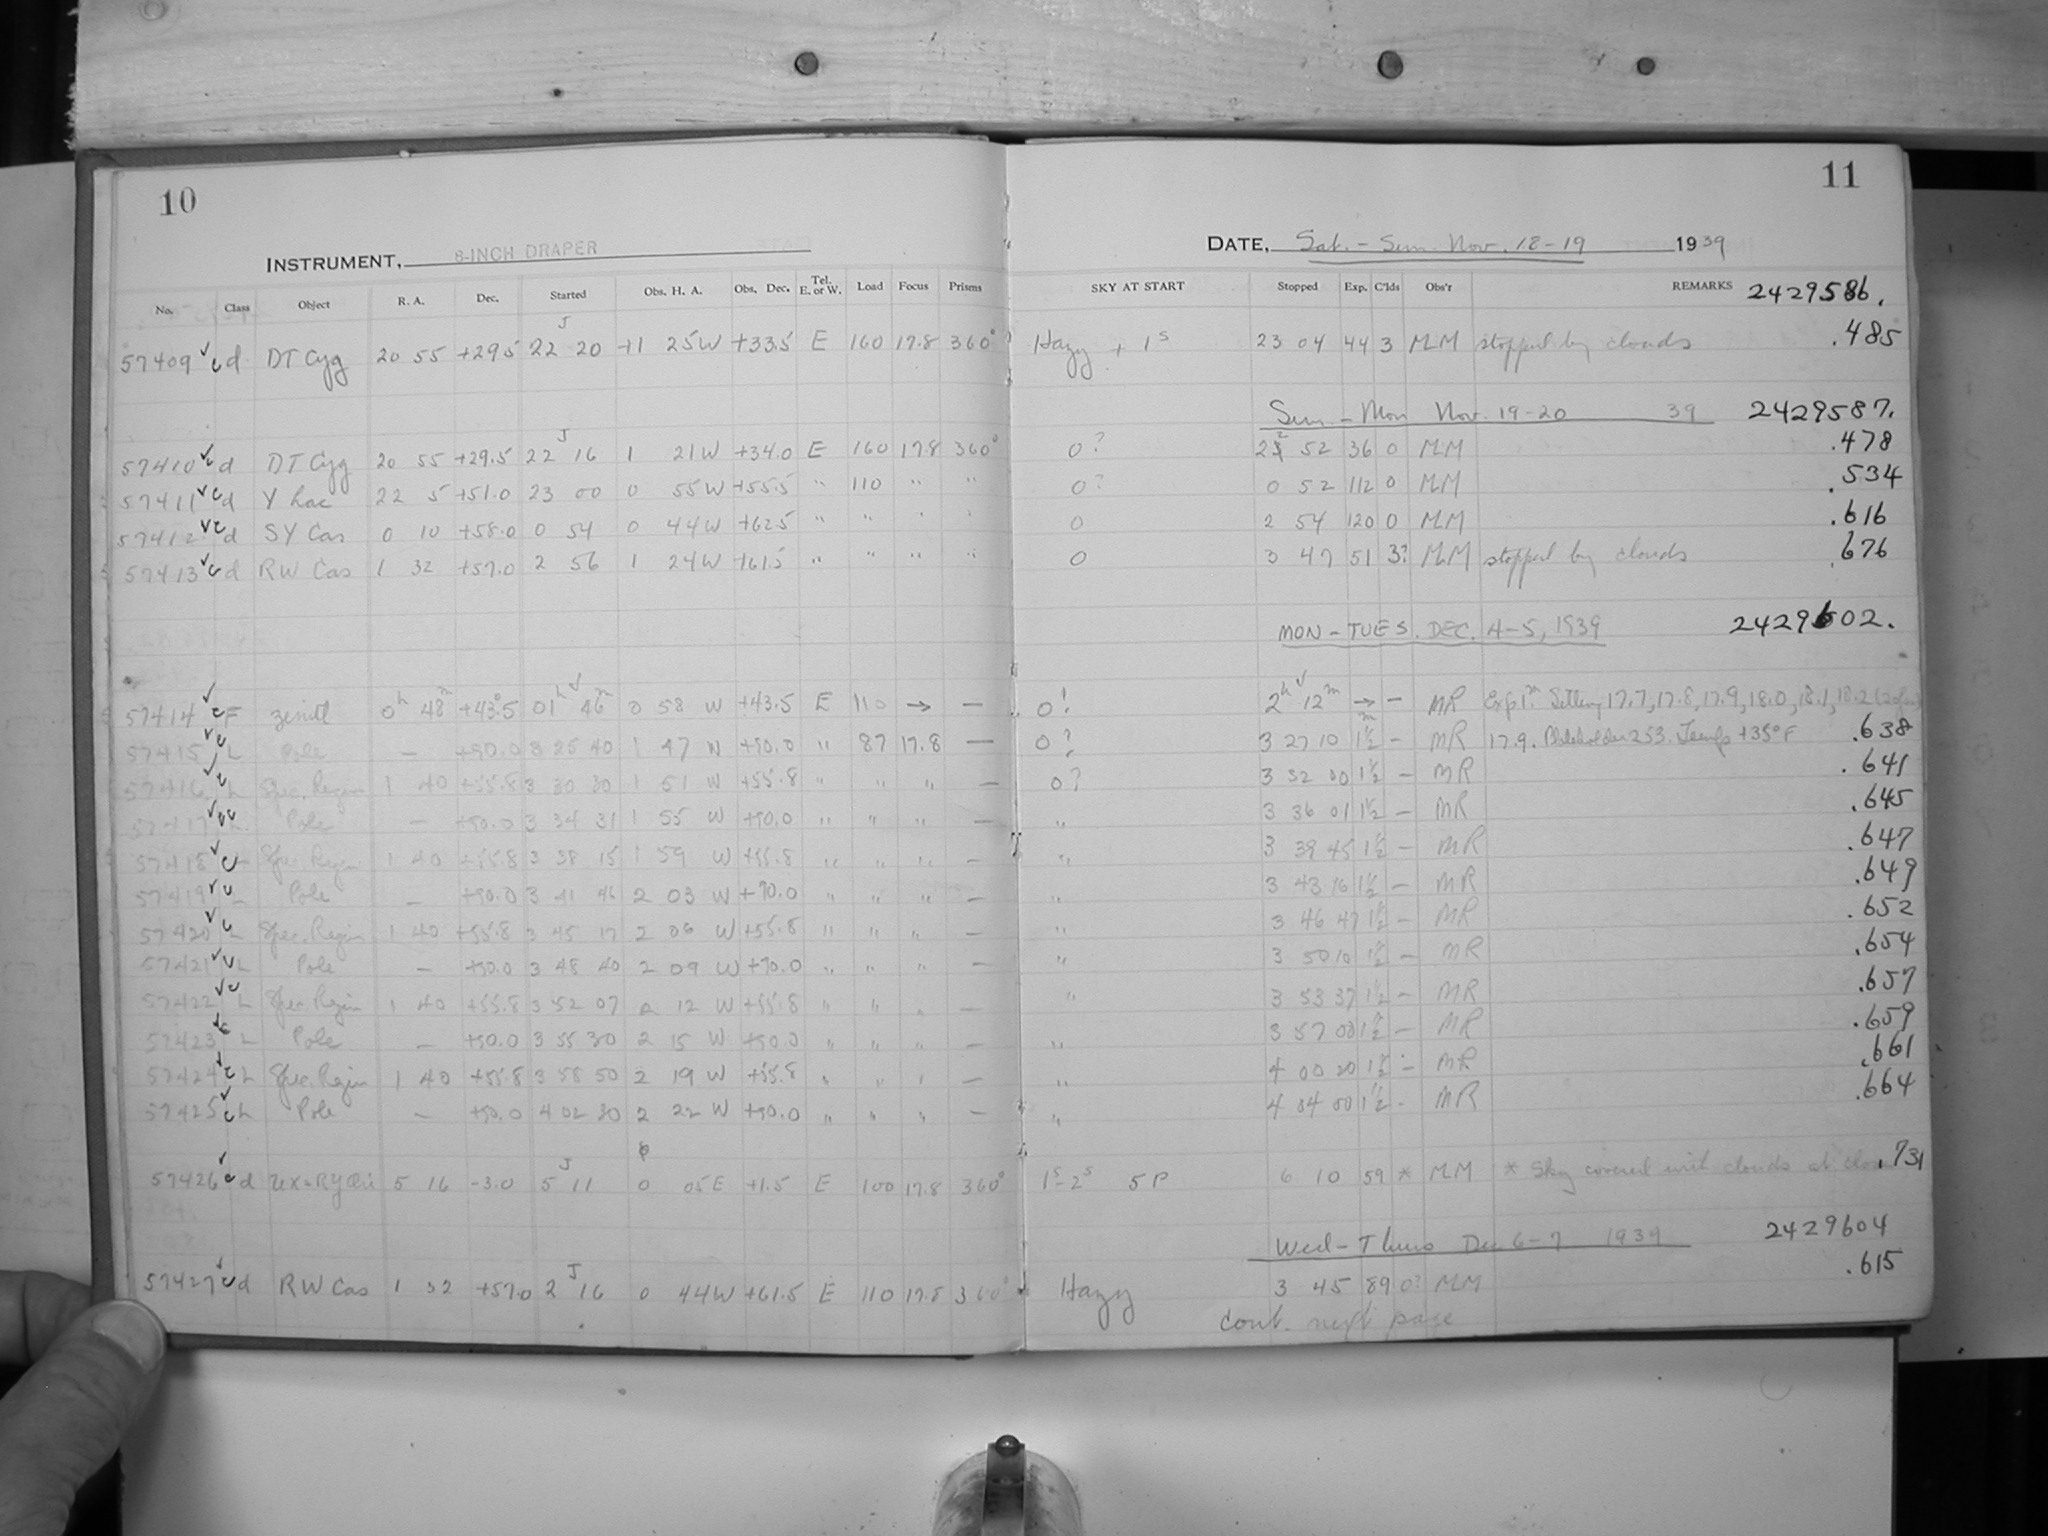 10
INSTRUMENT, 8-INCH DRAPER
No. Class Object R. A. Dec. Started Obs. H. A. Obs. Dec. Tel. E. or W. Load Focus Prisms
57409 c d DT Cyg 20 55 +29.5 22 J 20 +1 25W +33.5 E 160 17.8 360°
57410 c d DT Cyg 20 55 +29.5 22 J 16 1 21W +34.0 E 160 17.8 360°
57411 c d Y Lac 22 5 +51.0 23 00 0 55W +55.5 " 110 " "
57412 c d SY Cas 0 10 +58.0 0 54 0 44W +62.5 " " " "
57413 c d RW Cas 1 32 +57.0 2 56 1 24W +61.5 " " " "
57414 c F zenith 0h 48m +43.°5 01h 46m 0 58 W +43.5 E 110 → —
57415 c L Pole — +90.0 3 25 40 1 47 W +90.0 " 87 17.8 —
57416 c L Spec. Region 1 40 +55.8 3 30 30 1 51 W +55.8 " " " —
57417 c L Pole — +90.0 3 34 31 1 55 W +90.0 " " " —
57418 c L Spec. Region 1 40 +55.8 3 38 15 1 59 W +55.8 " " " —
57419 c L Pole — +90.0 3 41 46 2 03 W +90.0 " " " —
57420 c L Spec. Region 1 40 +55.8 3 45 17 2 06 W +55.8 " " " —
57421 c L Pole — +90.0 3 48 40 2 09 W +90.0 " " " —
57422 c L Spec. Region 1 40 +55.8 3 52 07 2 12 W +55.8 " " " —
57423 c L Pole — +90.0 3 55 30 2 15 W +90.0 " " " —
57424 c L Spec. Region 1 40 +55.8 3 58 50 2 19 W +55.8 " " " —
57425 c L Pole — +90.0 4 02 30 2 22 W +90.0 " " " —
57426 c d UX-RY Ori 5 16 -3.0 5 J 11 0 05E +1.5 E 100 17.8 360°
57427 c d RW Cas 1 32 +57.0 2 J 16 0 44W +61.5 E 110 17.8 360°
11
DATE, Sat. - Sun. Nov. 18-19 1939
SKY AT START Stopped Exp. C'lds Obs'r REMARKS 2429586.
Hazy + 1s 23 04 44 3 MM stopped by clouds .485
Sun - Mon Nov. 19-20 39 2429587.
0? 22 52 36 0 MM .478
0? 0 52 112 0 MM .534
0 2 54 120 0 MM .616
0 3 47 51 3? MM stopped by clouds .676
MON - TUES. DEC. 4-5, 1939 2429602.
0! 2h 12m → — MR Exp 1m. Setting 17.7, 17.8, 17.9, 18.0, 18.1, 18.2
0? 3 27 10 1½m - MR 17.9. Plateholder 253. Temp +35°F .638
0? 3 32 00 1½ — MR .641
" 3 36 01 1½ — MR .645
" 3 39 45 1½ — MR .647
" 3 43 16 1½ — MR .649
" 3 46 47 1½ — MR .652
" 3 50 10 1½ — MR .654
" 3 53 37 1½ — MR .657
" 3 57 00 1½ — MR .659
" 4 00 20 1½ — MR .661
" 4 04 00 1½ - MR .664
1s-2s 5P 6 10 59 * MM * Sky covered with clouds at .731
Wed - Thurs Dec 6-7 1939 2429604
Hazy 3 45 89 0? MM .615
cont. next page